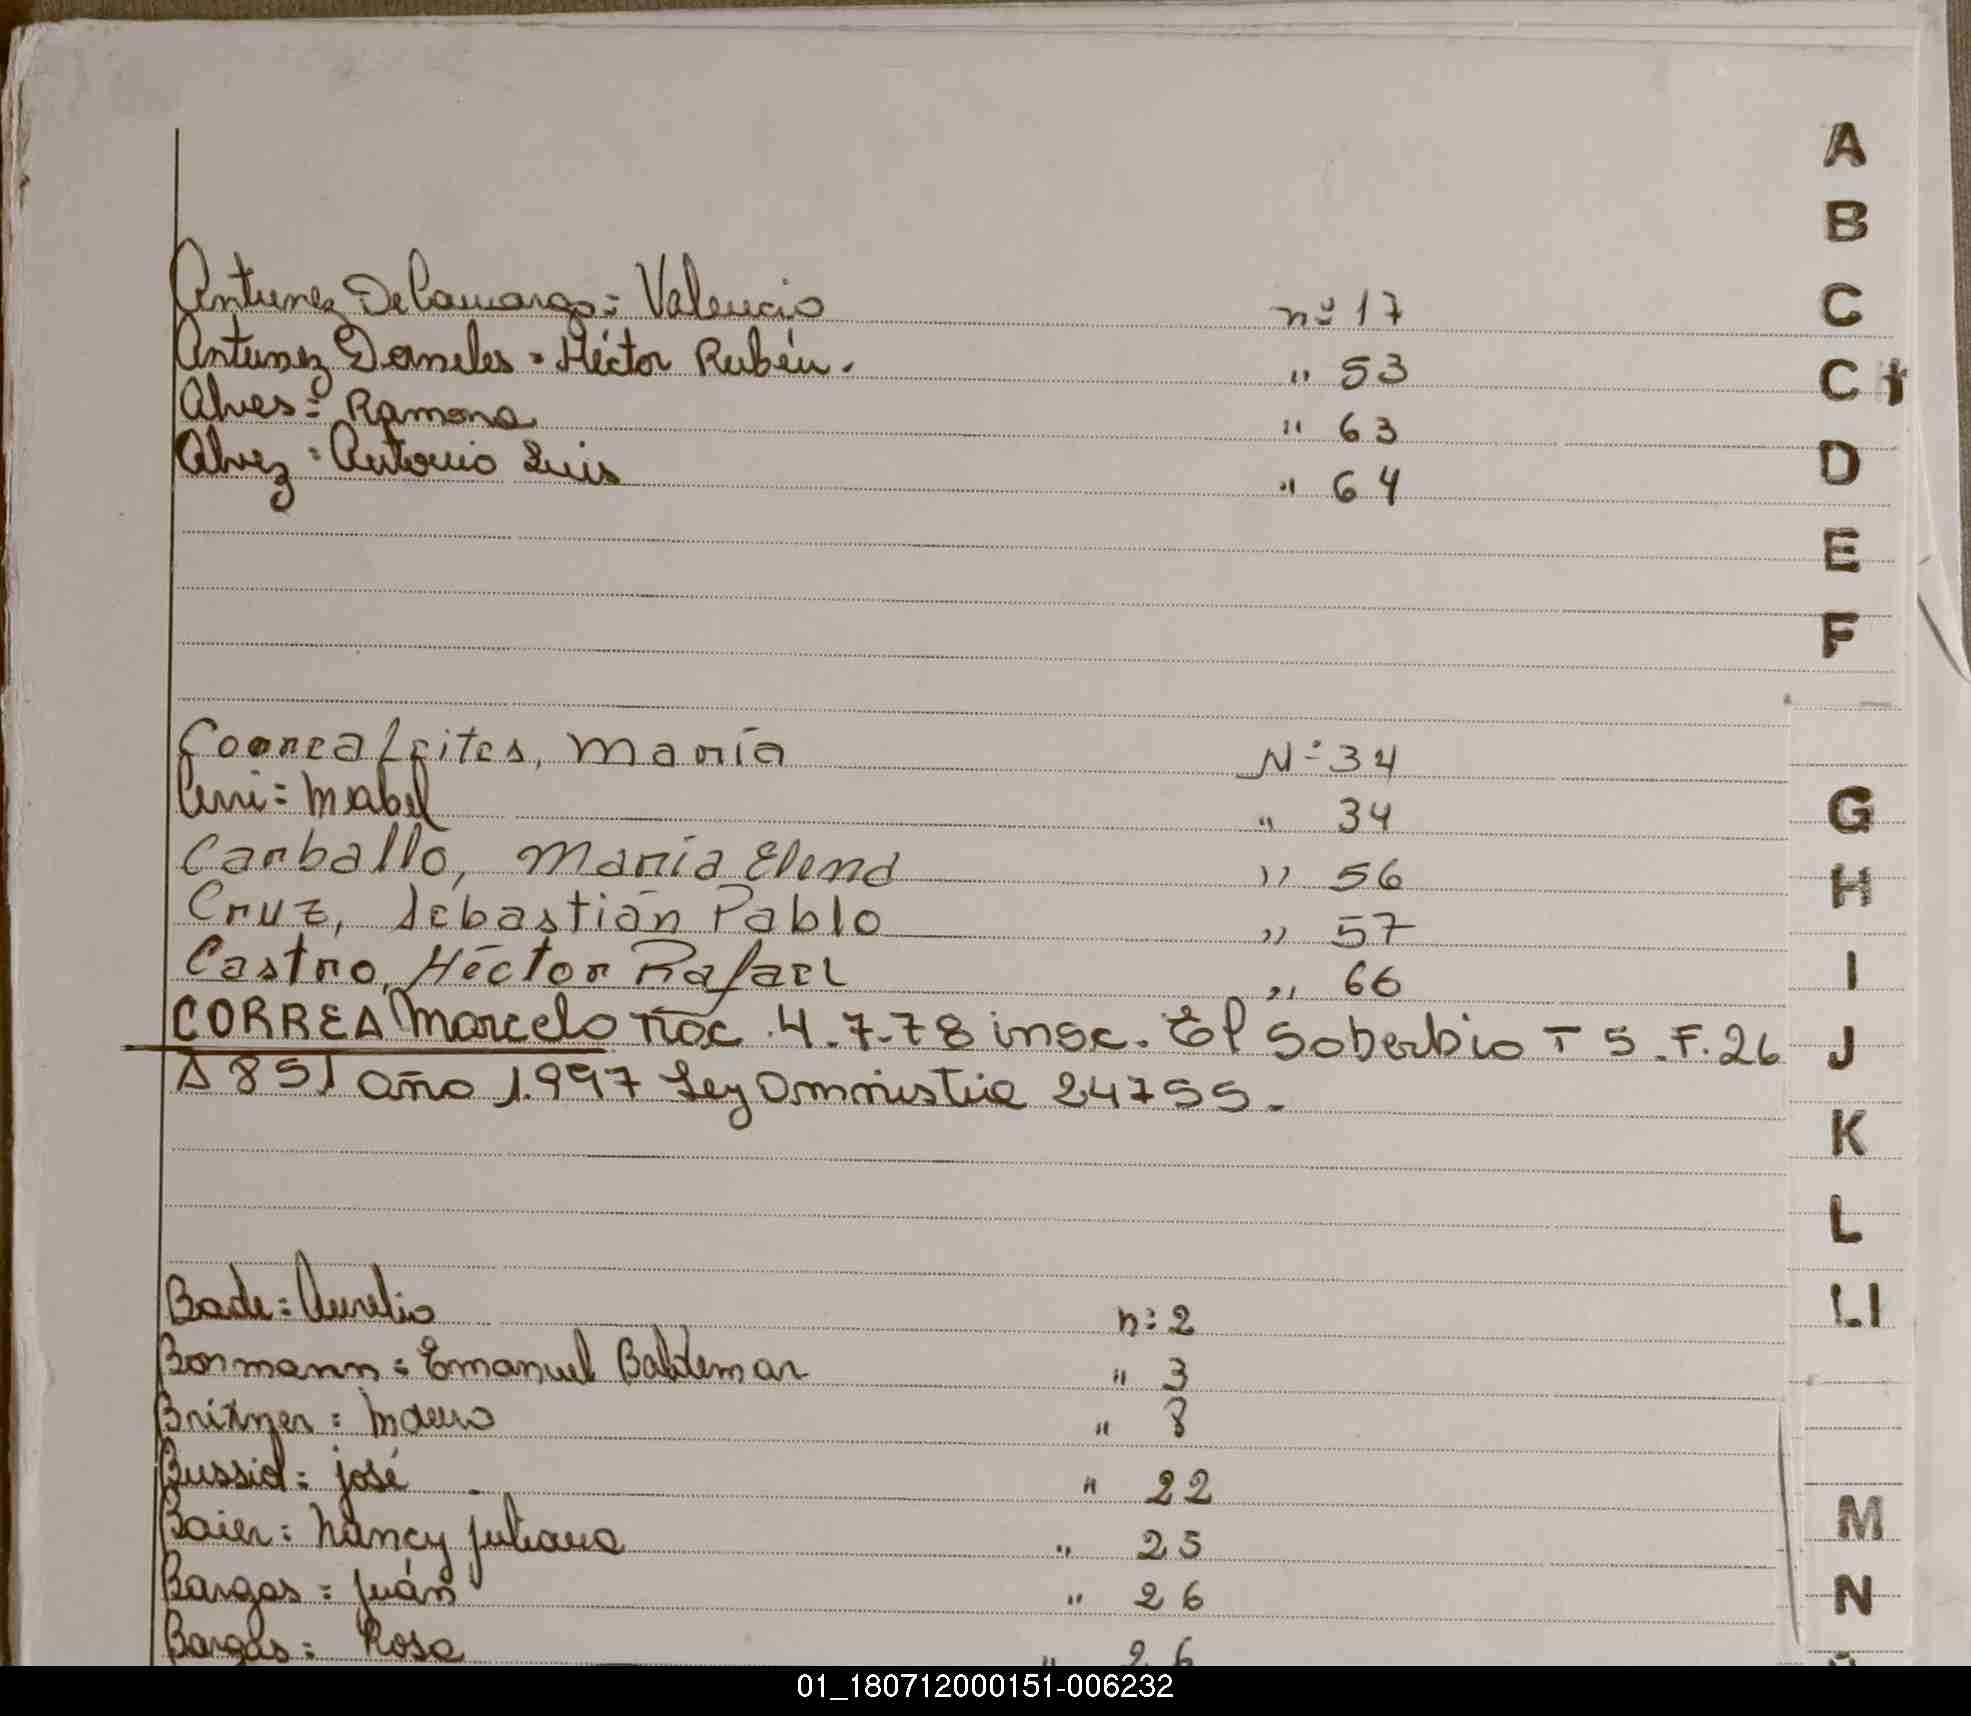 Antunez De Camargo = Valencio nº 17
Antunez Daneles = Héctor Rubén. " 53
Alves = Ramona " 63
Alvez = Antonio Luis " 64
Correa Leites, María Nº 34
Mabel " 34
Carballo, María Elena " 56
Cruz, Sebastián Pablo " 57
Castro, Héctor Rafael " 66
CORREA Marcelo nac. 4.7-78 insc. El Soberbio T 5. F.26
A 851 año 1.997 Ley Amnistia 24755.-
Bade = Aurelio nº 2
Bormann = Emanuel Baldemar " 3
Britzner = Mauro " 8
Bussid = José " 22
Baier = Nancy Juliana " 25
Bargas = Juán " 26
Bargas = Rosa " 26
A
B
C
CH
D
E
F
G
H
I
J
K
L
LL
M
N
01_180712000151-006232